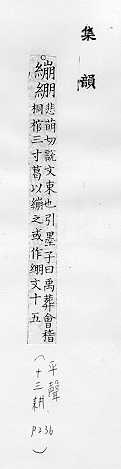 集韻
繃綳悲萌切說文束也引墨子曰禹葬會稽
桐棺三寸葛以繃之或作綳文十五
平聲
(十三耕
P236)